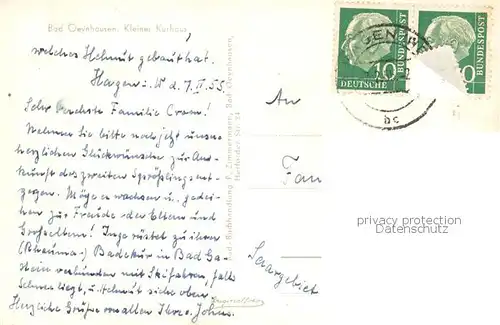 Bad Oeynhausen. Kleiner Kurhaus
welches Helmut gebaut hat.
Hagen i. W d. 7. II 55.
Sehr verehrte Familie
Nehmen Sie bitte noch jetzt unsere
herzlichen Glückwünsche zur An-
kunft des zweiten Sprößlings ent-
gegen. Möge er wachsen u. gedei-
hen zur Freude der Eltern und
Großeltern! Inge rüstet zu ihrer
(Rheuma-) Badekur in Bad Ga-
stein verbunden mit Skifahren, falls
Schnee liegt, u. Helmut siehe oben.
Herzliche Grüße von allen Ihre J. Johns.
F. Zimmermann, Bad Oeynhausen,
An
Fam
Saargebiet
DEUTSCHE
10
BUNDESPOST
BUNDESPOST
0
bc
privacy protection
Datenschutz.